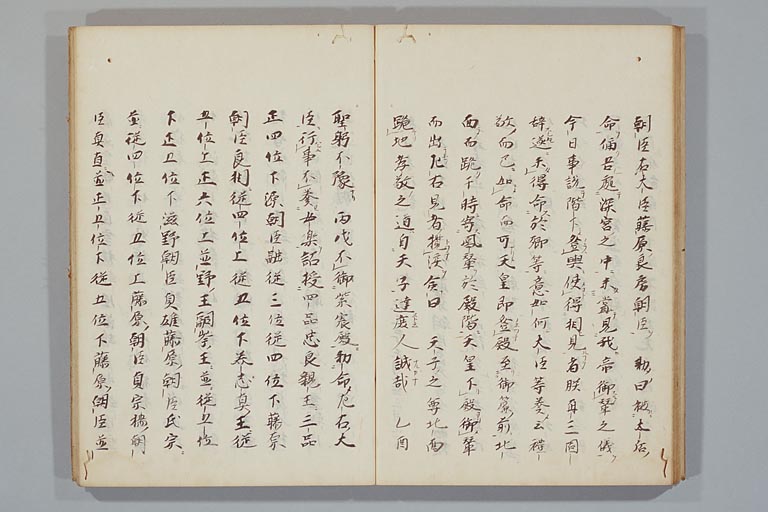 朝臣右大臣藤原良房朝臣 勅曰被太后
命偁吾處深宮之中未嘗見我帝御輦之儀
今日事説階下登輿使得相見者朕再三固
辞遂未得命於卿等意如何大臣等奏云禮
敬而已如命而可天皇即登殿至御簾前北
面而跪于時寄鳳輦於殿階天皇下殿御輦
而出左右見者攬涙僉曰 天子之尊北面
跪地孝敬之道自天子達庶人誠哉 乙酉
聖躬不豫 丙戌不御紫宸殿勅命左右大
臣行事不奏女楽詔授四品忠良親王三品
正四位下源朝臣融従三位従四位下藤原
朝臣良相従四位上従五位下基志真王従
五位上正六位上並野王嗣岑王並従五位
下正五位下滋野朝臣貞雄藤原朝臣氏宗
並従四位下従五位上藤原朝臣貞宗橘朝
臣真直並正五位下従五位下藤原朝臣並